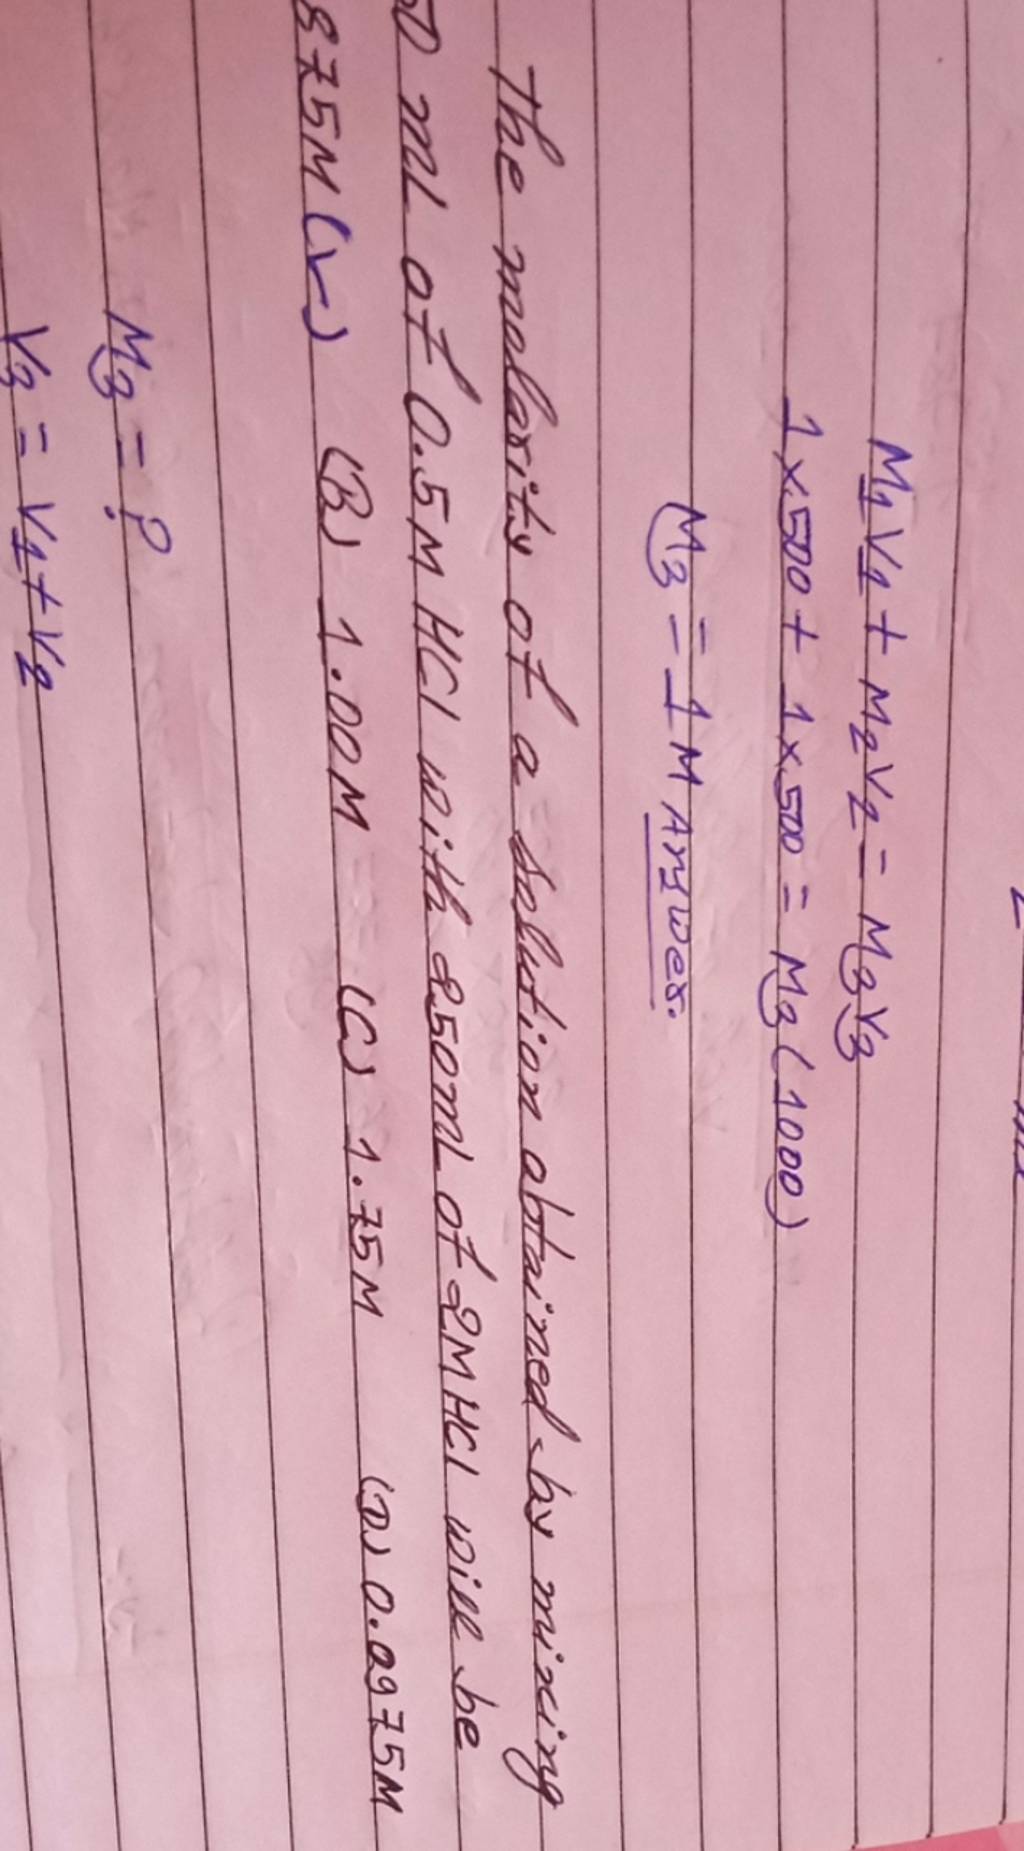 M1V1 + M2V2 = M3V3
1 × 500 + 1 × 500 = M3 (1000)
M3 = 1 M Answer.
The molarity of a solution obtained by mixing
0 mL of 0.5 M HCl with 250 mL of 2 M HCl will be
875 M (✓) (B) 1.00 M (C) 1.75 M (D) 0.0975 M
M3 = ?
V3 = V1 + V2